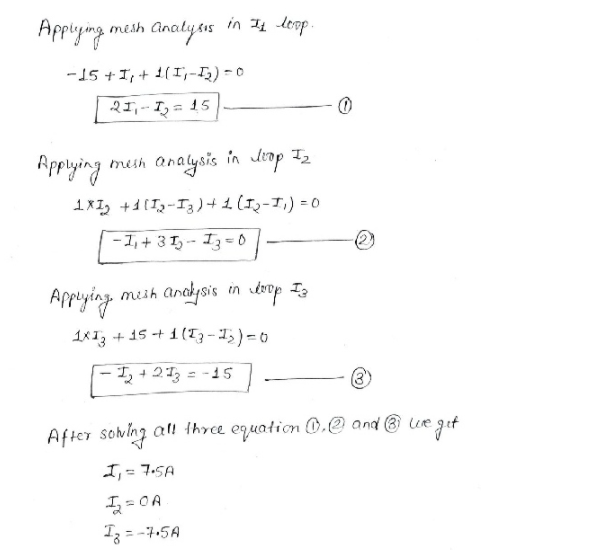 Applying mesh analysis in I₁ loop.
-15 + I₁ + 1(I₁-I₂) = 0
2I₁ - I₂ = 15 ①
Applying mesh analysis in loop I₂
1×I₂ + 1(I₂-I₃) + 1(I₂-I₁) = 0
-I₁ + 3I₂ - I₃ = 0 ②
Applying mesh analysis in loop I₃
1×I₃ + 15 + 1(I₃-I₂) = 0
-I₂ + 2I₃ = -15 ③
After solving all three equation ①,② and ③ we get
I₁ = 7.5A
I₂ = 0A
I₃ = -7.5A